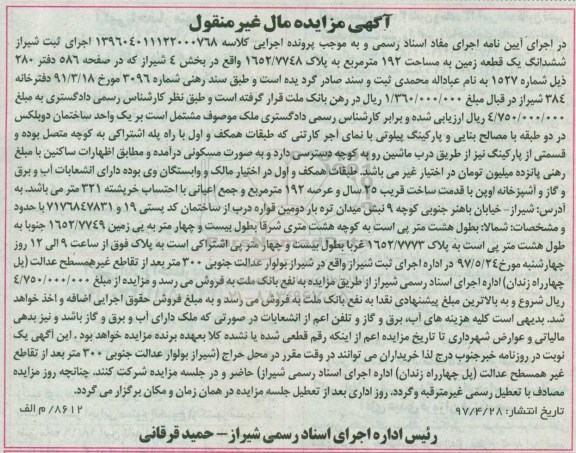 آگهی مزایده مال غیر منقول
در اجرای آیین نامه اجرای مفاد اسناد رسمی و به موجب پرونده اجرایی کلاسه ۱۳۹۶۰۴۰۱۱۱۲۲۰۰۰۷۶۸ اجرای ثبت شیراز
ششدانگ یک قطعه زمین به مساحت ۱۹۲ مترمربع به پلاک ۱۶۵۲/۷۷۴۸ واقع در بخش ۴ شیراز که در صفحه ۵۸۶ دفتر ۲۸۰
ذیل شماره ۱۵۲۷ به نام عبداله محمدی ثبت و سند صادر گردیده است و طبق سند رهنی شماره ۳۰۹۶ مورخ ۹۱/۳/۱۸ دفترخانه
۳۸۴ شیراز در قبال مبلغ ۱/۳۶۰/۰۰۰/۰۰۰ ریال در رهن بانک ملت قرار گرفته است و طبق نظر کارشناس رسمی دادگستری به مبلغ
۴/۷۵۰/۰۰۰/۰۰۰ ریال ارزیابی شده و برابر کارشناس رسمی دادگستری ملک موصوف مشتمل است بر یک واحد ساختمان دوبلکس
در دو طبقه با مصالح بنایی و پارکینگ پیلوتی با نمای آجر کارتنی که طبقات همکف و اول با راه پله اشتراکی به کوچه متصل بوده و
قسمتی از پارکینگ نیز از طریق درب ماشین رو به کوچه دسترسی دارد و به صورت مسکونی درآمده و مطابق اظهارات ساکنین با مبلغ
رهنی پانزده میلیون تومان در اختیار غیر می باشد. طبقات همکف و اول در اختیار مالک و وابستگان وی بوده دارای انشعابات آب و برق
و گاز و آشپزخانه اوپن با قدمت ساخت قریب ۲۵ سال و عرصه ۱۹۲ مترمربع و جمع اعیانی با احتساب خرپشته ۳۲۱ متر می باشد. به
آدرس: شیراز – خیابان باهنر جنوبی کوچه ۹ نبش میدان تره بار دومین قواره درب از ساختمان کد پستی ۱۹ و ۷۱۷۶۸۴۷۸۳۱ با حدود
و مشخصات: شمالا: بطول هشت متر پی است به کوچه هشت متری شرقا بطول بیست و چهار متر به پی زمین ۱۶۵۲/۷۷۴۹ جنوبا به
طول هشت متر پی است به پلاک ۱۶۵۲/۷۷۷۳ غربا بطول بیست و چهار متر پی اشتراکی است به پلاک فوق از ساعت ۹ الی ۱۲ روز
چهارشنبه مورخ ۹۷/۵/۲۴ در اداره اجرای ثبت شیراز واقع در شیراز بولوار عدالت جنوبی ۳۰۰ متر بعد از تقاطع غیرهمسطح عدالت (پل
چهارراه زندان) اداره اجرای اسناد رسمی شیراز از طریق مزایده به نفع بانک ملت به فروش می رسد و مزایده از مبلغ ۴/۷۵۰/۰۰۰/۰۰۰
ریال شروع و به بالاترین مبلغ پیشنهادی نقدا به نفع بانک ملت به فروش می رسد و به مبلغ فروش حقوق اجرایی اضافه و اخذ خواهد
شد. بدیهی است کلیه هزینه های آب، برق و گاز و تلفن اعم از انشعابات در صورتی که ملک دارای آب و برق و گاز باشد و نیز بدهی
مالیاتی و عوارض شهرداری تا تاریخ مزایده اعم از اینکه رقم قطعی شده یا نشده کلا بعهده برنده مزایده خواهد بود. این آگهی یک
نوبت در روزنامه خبرجنوب درج لذا خریداران می توانند در وقت مقرر در محل حراج (شیراز بولوار عدالت جنوبی ۳۰۰ متر بعد از تقاطع
غیر همسطح عدالت (پل چهارراه زندان) اداره اجرای اسناد رسمی شیراز) حاضر و در جلسه مزایده شرکت کنند. چنانچه روز مزایده
مصادف با تعطیل رسمی غیرمترقبه وگردد، روز اداری بعد از تعطیل جلسه مزایده در همان زمان و مکان برگزار می گردد.
تاریخ انتشار: ۹۷/۴/۲۸ ۸۶۱۲/ م الف
رئیس اداره اجرای اسناد رسمی شیراز – حمید قرقانی